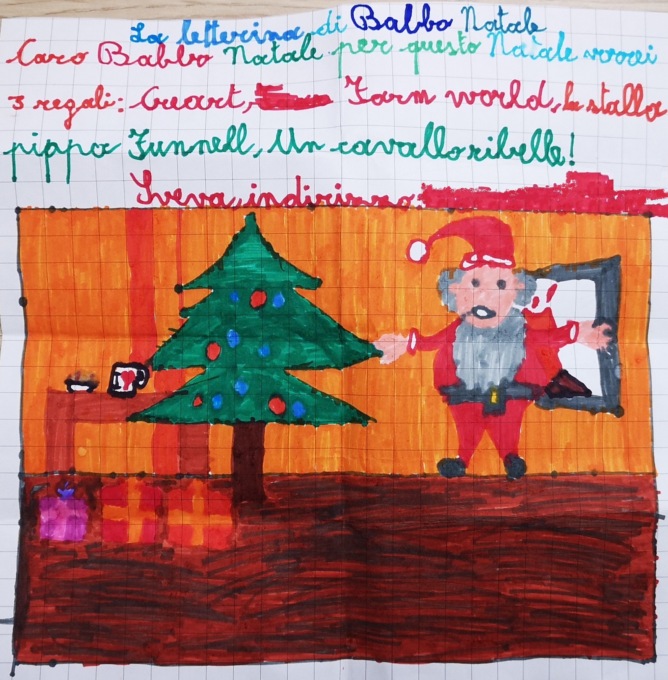 La letterina di Babbo Natale
Caro Babbo Natale per questo Natale vorrei
3 regali: Creart, Farm world, la stalla
pippa Funnell, Un cavallo ribelle!
Sveva, indirizzo: